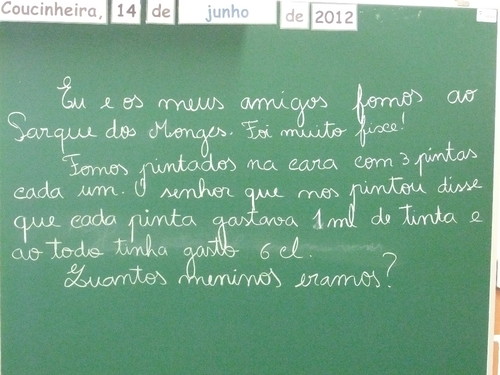 Coucinheira, 14 de junho de 2012
Eu e os meus amigos fomos ao
Parque dos Monges. Foi muito fixe!
Fomos pintados na cara com 3 pintas
cada um. O senhor que nos pintou disse
que cada pinta gastava 1 ml de tinta e
ao todo tinha gasto 6 cl.
Quantos meninos eramos?